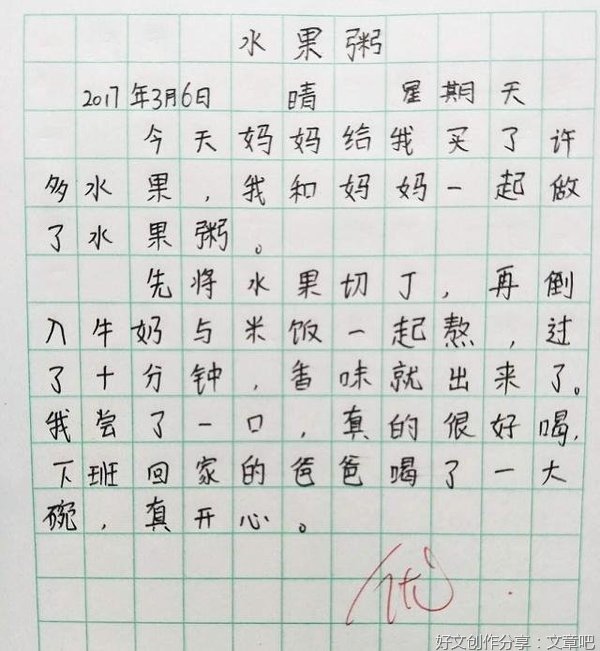 水果粥
2017年3月6日 晴 星期天
今天妈妈给我买了许
多水果，我和妈妈一起做
了水果粥。
先将水果切丁，再倒
入牛奶与米饭一起熬，过
了十分钟，香味就出来了。
我尝了一口，真的很好喝，
下班回家的爸爸喝了一大
碗，真开心。
优
好文创作分享：文章吧